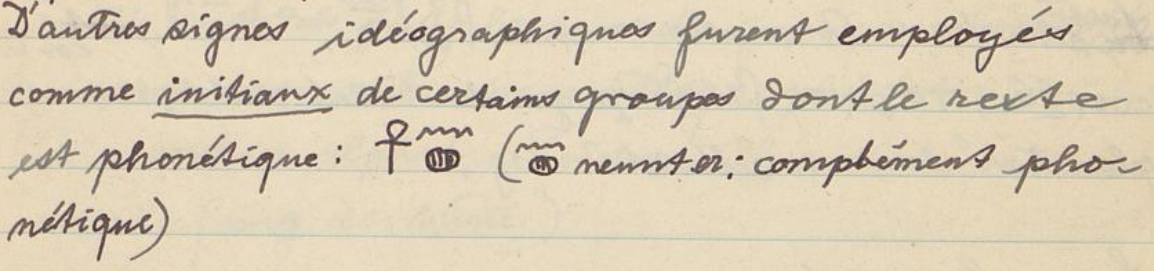 D'autres signes idéographiques furent employés
comme initiaux de certains groupes dont le reste
est phonétique : 𓋹𓈖𓐍 (𓈖𓐍 : complément pho-
nétique)